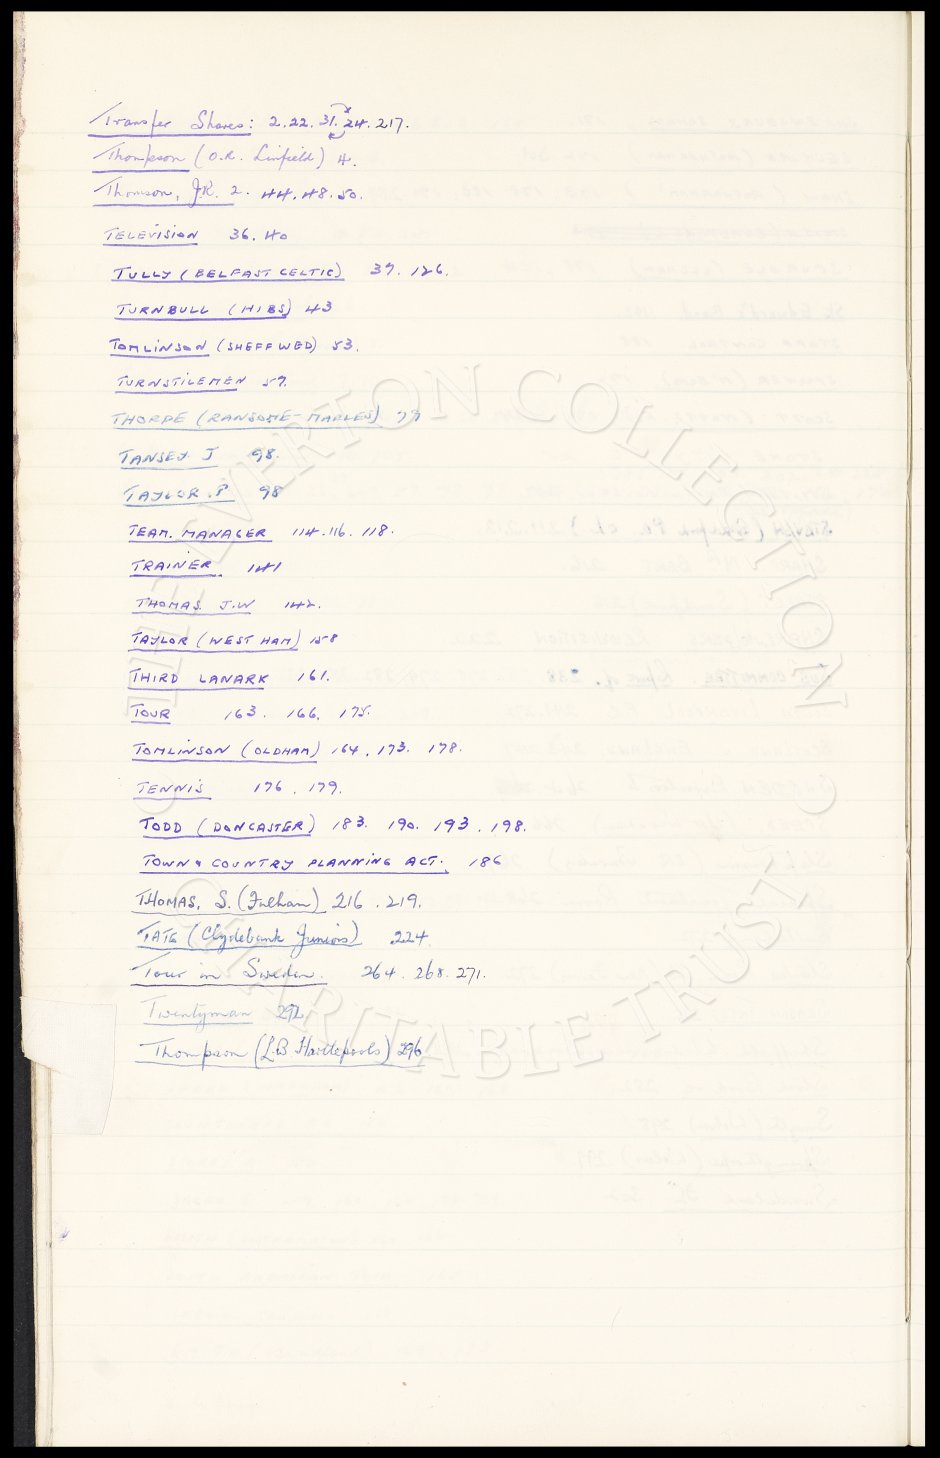 Transfer Shares: 2. 22. 31. 24. 217.
Thompson (O.R. Linfield) 4.
Thomson, JK. 2. 44. 48. 50.
TELEVISION 36. 40
TULLY (BELFAST CELTIC) 37. 126.
TURNBULL (HIBS) 43
TOMLINSON (SHEFF WED) 53.
TURNSTILEMEN 57.
THORPE (RANSOME-MARLES) 77
TANSEY. J 98.
TAYLOR. P 98
TEAM. MANAGER 114. 116. 118.
TRAINER. 141
THOMAS. J.W 142.
TAYLOR (WEST HAM) 158
THIRD LANARK 161.
TOUR 163. 166. 175.
TOMLINSON (OLDHAM) 164. 173. 178.
TENNIS 176. 179.
TODD (DONCASTER) 183. 190. 193. 198.
TOWN & COUNTRY PLANNING ACT. 186
THOMAS, S. (Fulham) 216. 219.
TATE (Clydebank Juniors) 224
Tour in Sweden. 264. 268. 271.
Twentyman 292
Thompson (L.B Hartlepools) 296
THE EVERTON COLLECTION
CHARITABLE TRUST